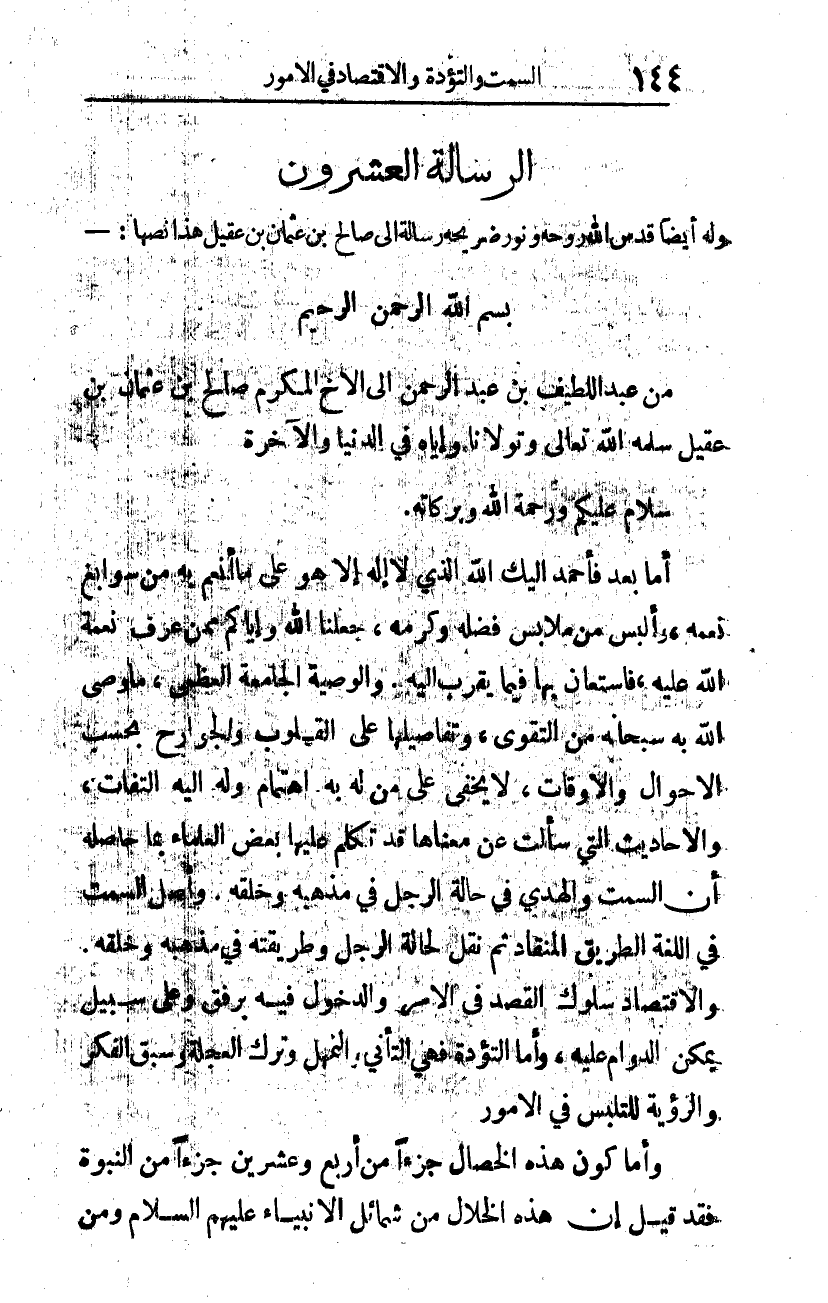 ١٤٤ السمت والتؤدة والاقتصاد في الامور
الرسالة العشرون
وله أيضاً قدس الله روحه ونور ضريحه رسالة الى صالح بن عثمان بن عقيل هذا نصها : —
بسم الله الرحمن الرحيم
من عبد اللطيف بن عبد الرحمن الى الاخ المكرم صالح بن عثمان بن
عقيل سلمه الله تعالى وتولانا وإياه في الدنيا والآخرة
سلام عليكم ورحمة الله وبركاته.
أما بعد فأحمد اليك الله الذي لا إله إلا هو على ما أنعم به من سوابغ
نعمه ، وألبس من ملابس فضله وكرمه ، جعلنا الله وإياكم ممن عرف نعمة
الله عليه ، فاستعان بها فيما يقرب اليه . والوصية الجامعة العظمى ، ما وصى
الله به سبحانه من التقوى ، وتفاصيلها على القلوب والجوارح بحسب
الاحوال والاوقات ، لا يخفى على من له به اهتمام وله اليه التفات ،
والاحاديث التي سألت عن معناها قد تكلم عليها بعض العلماء بما حاصله
أن السمت والهدي في حالة الرجل في مذهبه وخلقه . وأصل السمت
في اللغة الطريق المنقاد ثم نقل لحالة الرجل وطريقته في مذهبه وخلقه .
والاقتصاد سلوك القصد في الامر والدخول فيه برفق وعلى سبيل
يمكن الدوام عليه ، وأما التؤدة فهي التأني والتمهل وترك العجلة وسبق الفكر
والرؤية للتلبس في الامور
وأما كون هذه الخصال جزءاً من أربع وعشرين جزءاً من النبوة
فقد قيل إن هذه الخلال من شمائل الانبياء عليهم السلام ومن